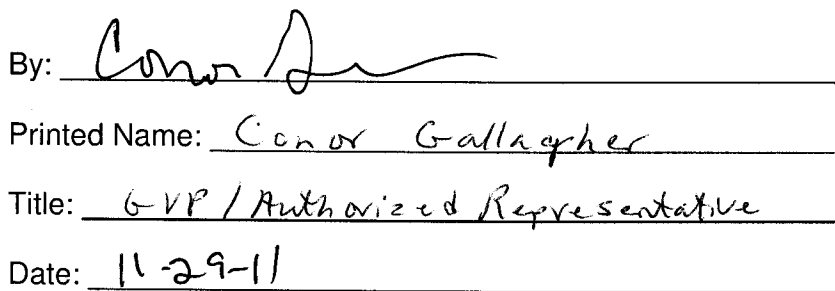 By: Conor
Printed Name: Conor Gallagher
Title: GVP / Authorized Representative
Date: 11-29-11